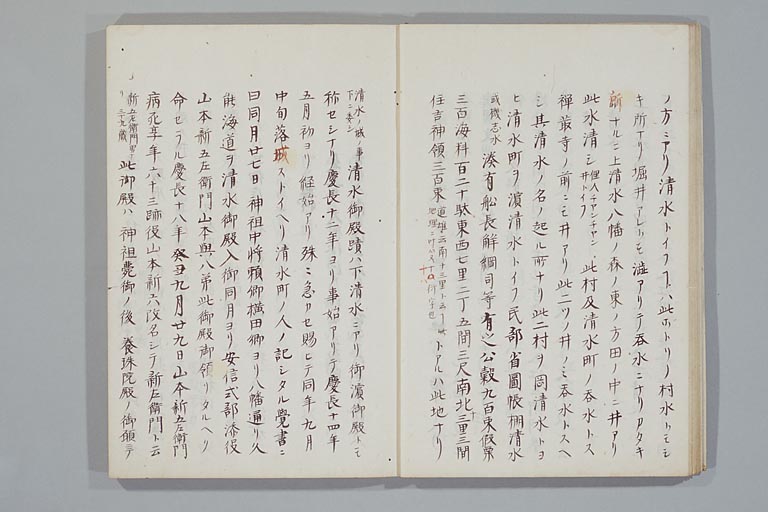 ノ方ニアリ清水トイフヿハ此ホトリノ村水トモシ
キ所ナリ堀井アレトモ澁アリテ呑水ニナリカタキ
所ナルニ上清水八幡ノ森ノ東ノ方田ノ中ニ井アリ
此水清シ 此村及清水町ノ呑水トス
禅叢寺ノ前ニモ井アリ此二ツノ井ノミ呑水トスヘ
シ其清水ノ名ノ起ル所ナリ此二村ヲ岡清水トヨ
ヒ清水町ヲ濵清水トイフ民部省圖帳柵清水
或磯志水 湊有舩長觧綱司等有之公糓九百束假粟
三百海料百二十駄東西七里二丁五間三尺南北三里三間
住吉神領三百束 トアルハ此地ナリ
清水ノ城ノ事下ニ委シ 清水御殿蹟ハ下清水ニアリ御濵御殿トモ
称セシナリ慶長十二年ヨリ事始アリテ慶長十四年
五月初ヨリ経始アリ殊ニ急カセ賜ヒテ同年九月
中旬落城ストイヘリ清水町ノ人ノ記シタル覺書ニ
曰同月廿七日神祖中將頼御横田御ヨリ八幡通リ久
能海道ヲ清水御殿入御同月ヨリ安信式部添役
山本新五左衛門山本與八第此御殿御領リタルヘリ
命セラル慶長十八年癸丑九月廿九日山本新五左衛門
病死享年六十三跡役山本新六改名シテ新左衛門ト云
リ 此御殿ハ神祖薨御ノ後養珠院殿ノ御願ニテ